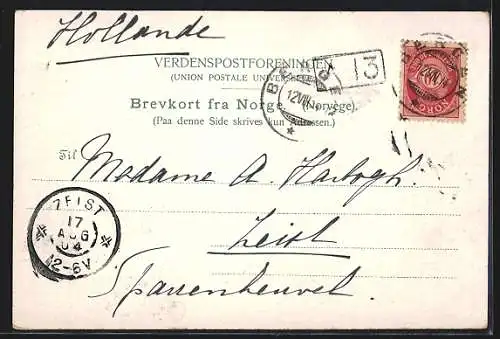 Hollande
VERDENSPOSTFORENINGEN
(UNION POSTALE UNIVERSELLE)
13
Brevkort fra Norge. (Norvège).
(Paa denne Side skrives kun Adressen.)
BERGEN
12 VIII
NORGE
Til Madame A. Hartogh.
Zeist
Sparrenheuvel.
ZEIST
17
AUG
04
12-6V